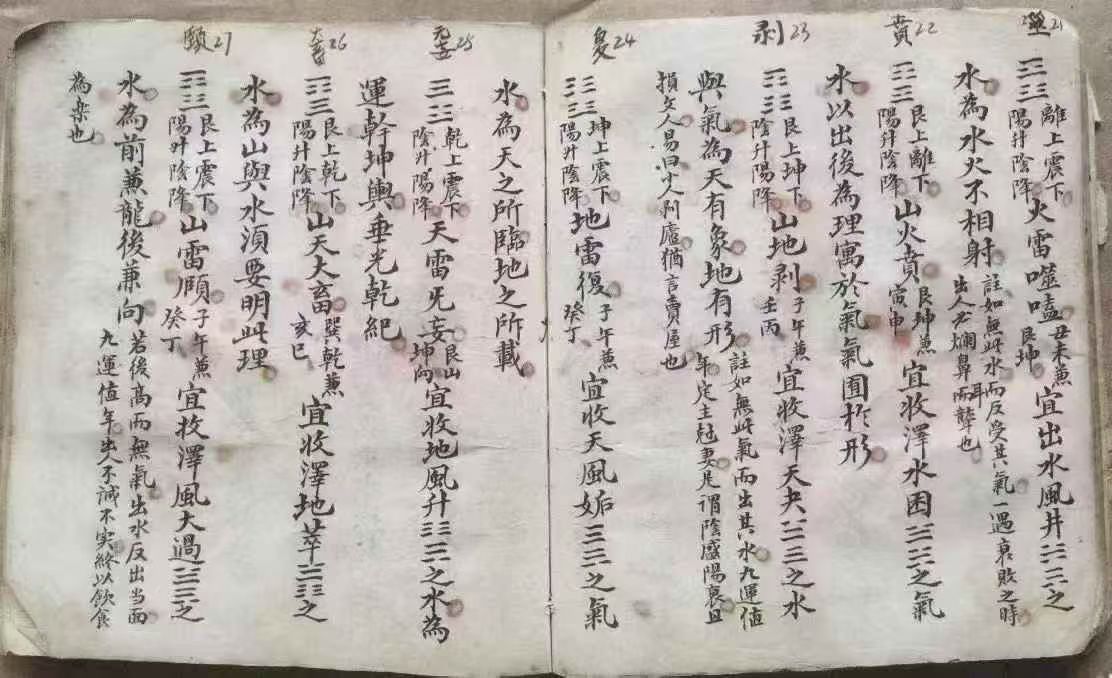 噬21
離上震下
陽升陰降
火雷噬嗑
丑未兼
艮坤
宜出水風井
之
水為水火不相射
註如無此水而反受其氣一遇衰敗之時
出人必爛鼻而聾也
耳
賁22
艮上離下
陽升陰降
山火賁
艮坤兼
寅申
宜收澤水困
之氣
水以出後為理寓於氣氣囿於形
剥23
艮上坤下
陰升陽降
山地剥
子午兼
壬丙
宜收澤天夬
之水
與氣為天有象地有形
註如無此氣而出其水九運值
年定主尅妻是謂陰盛陽衰且
損女人易曰小人剥廬猶言賣屋也
复24
坤上震下
陽升陰降
地雷復
子午兼
癸丁
宜收天風姤
之氣
水為天之所臨地之所載
无妄25
乾上震下
陰升陽降
天雷旡妄
艮山
坤向
宜收地風升
之水為
運幹坤輿垂光乾紀
大畜26
艮上乾下
陽升陰降
山天大畜
巽乾兼
亥巳
宜收澤地萃
之
水為山與水須要明此理
頤27
艮上震下
陽升陰降
山雷頤
子午兼
癸丁
宜收澤風大過
之
水為前兼龍後兼向
若後高而無氣出水反出当面
九運值年出人不誠不实終以飲食
為楽也